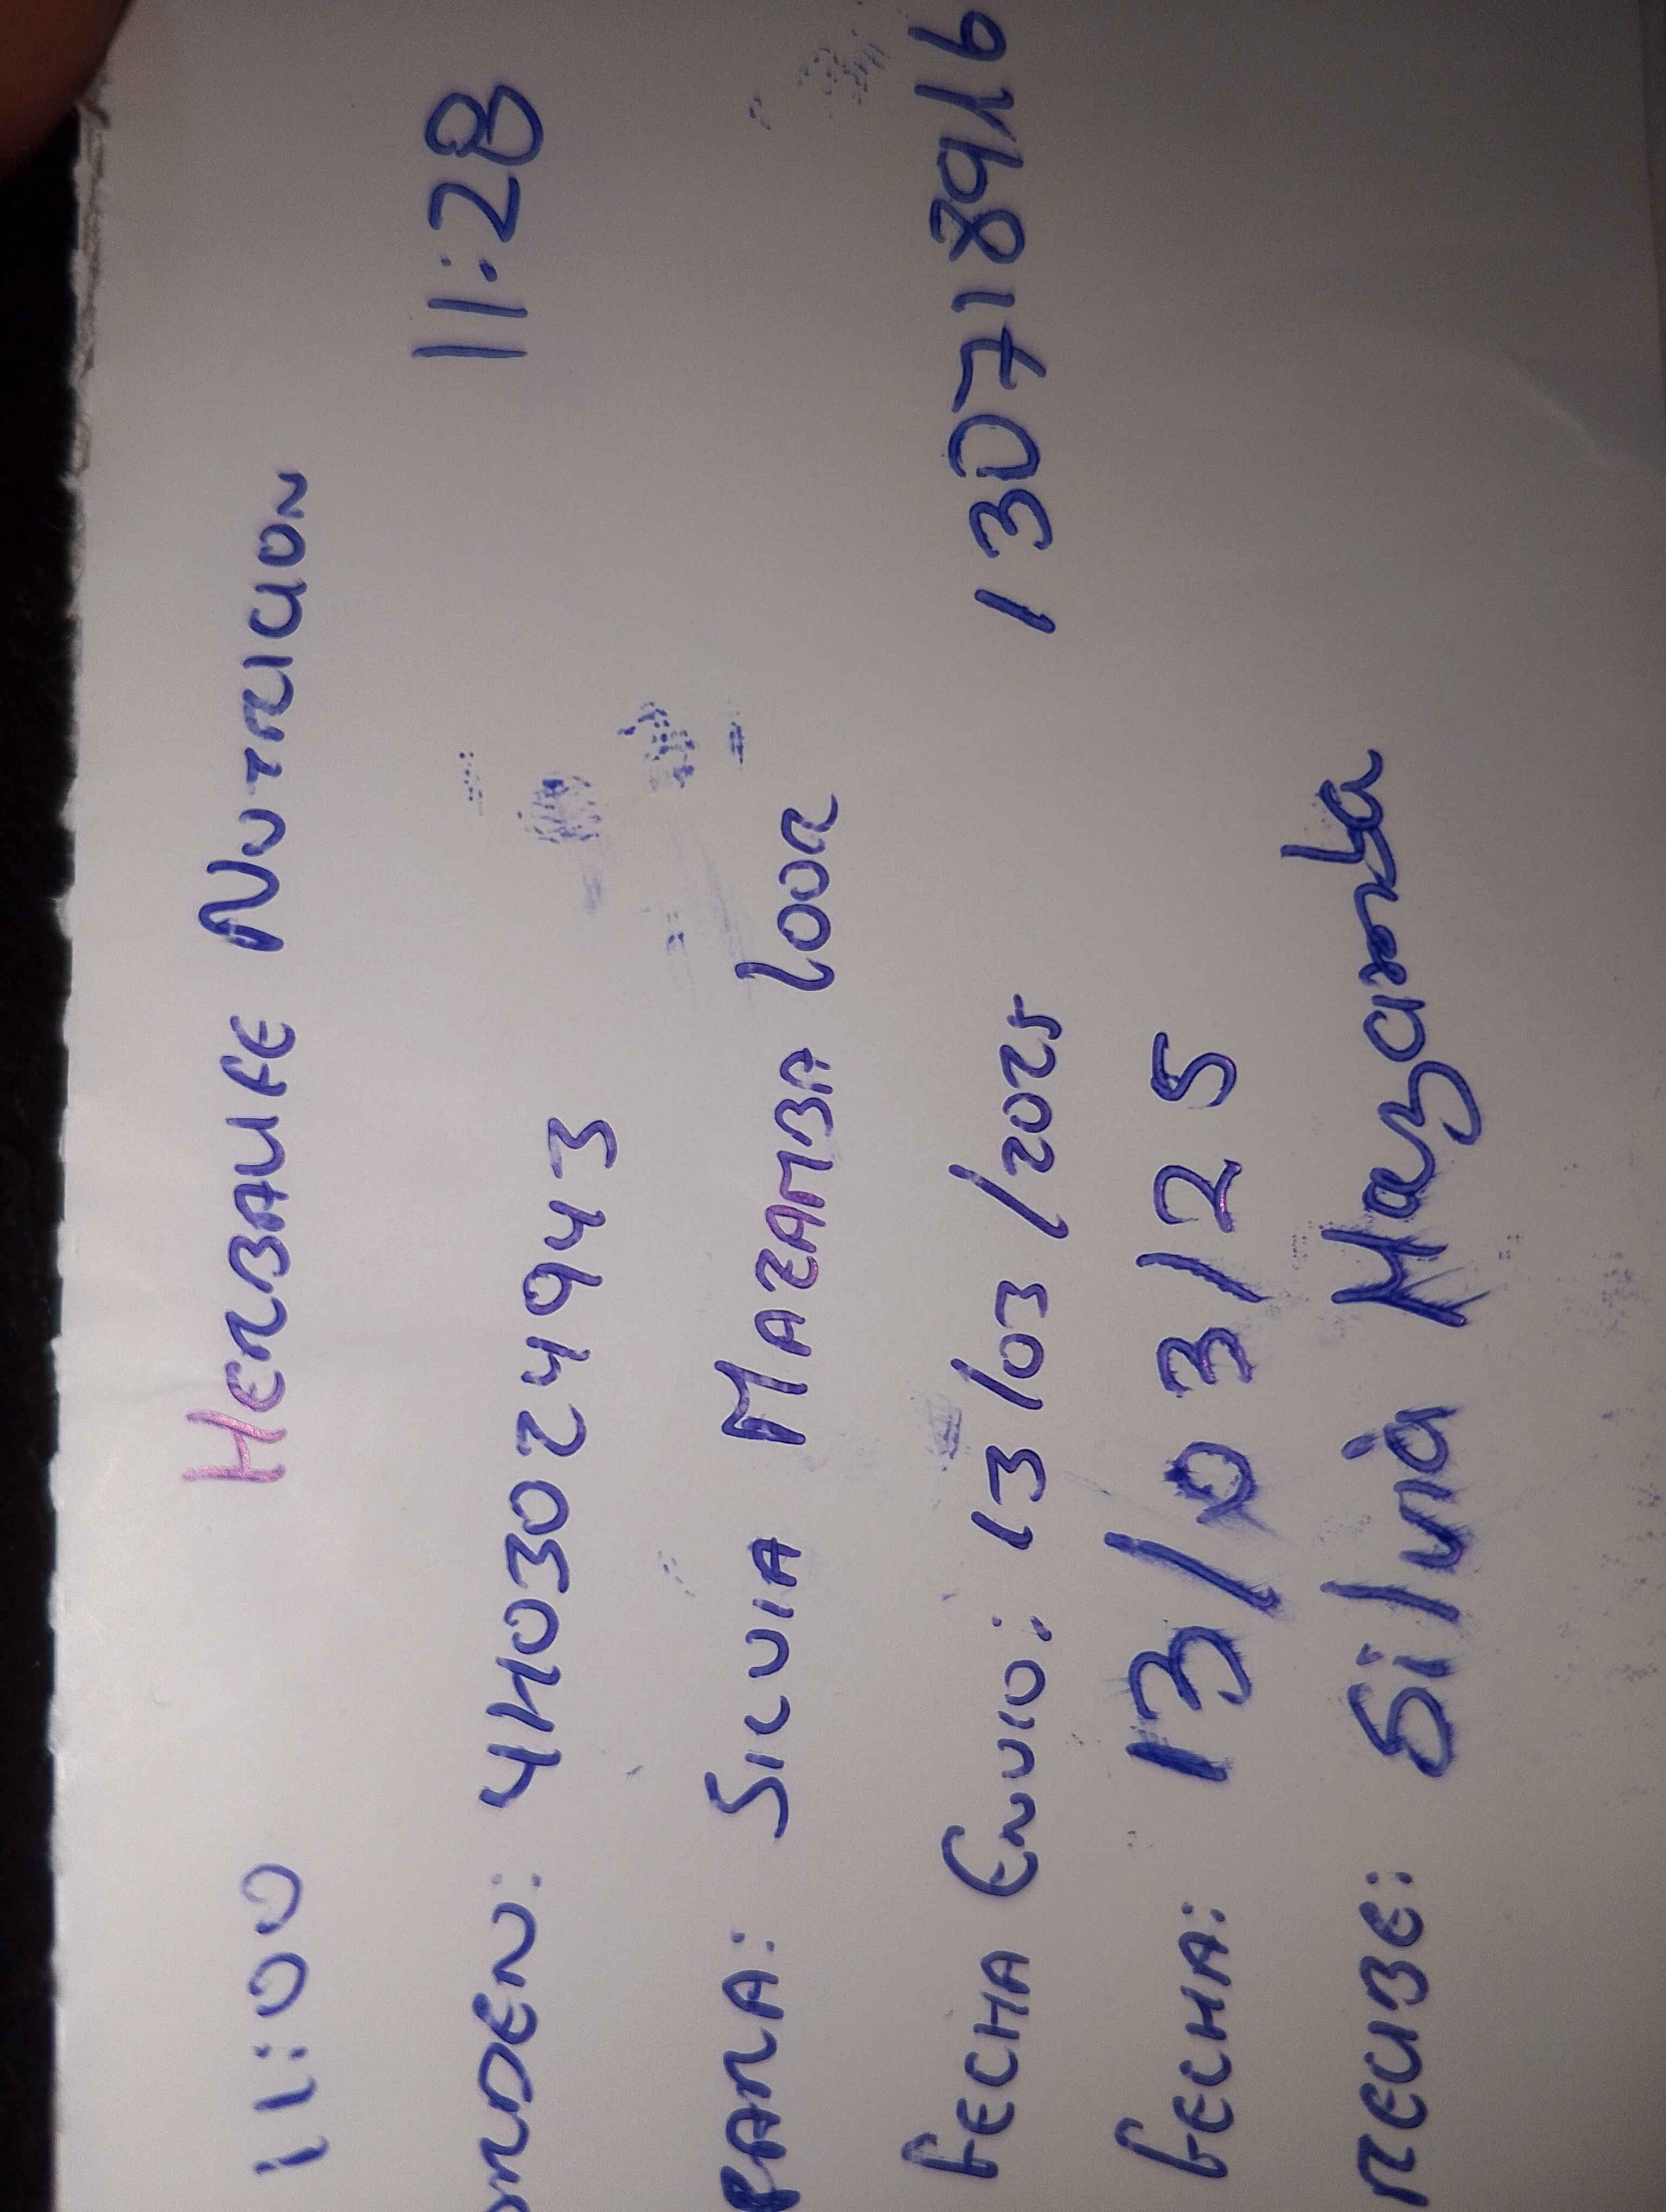 11:00 HERBALIFE NUTRICION
11:28
ORDEN: 4H03024943
PARA: SILVIA MAZAMBA LOOR
FECHA ENVIO: 13/03/2025 1307189416
FECHA: 13/03/25
RECIBE: Silvia Mazamba